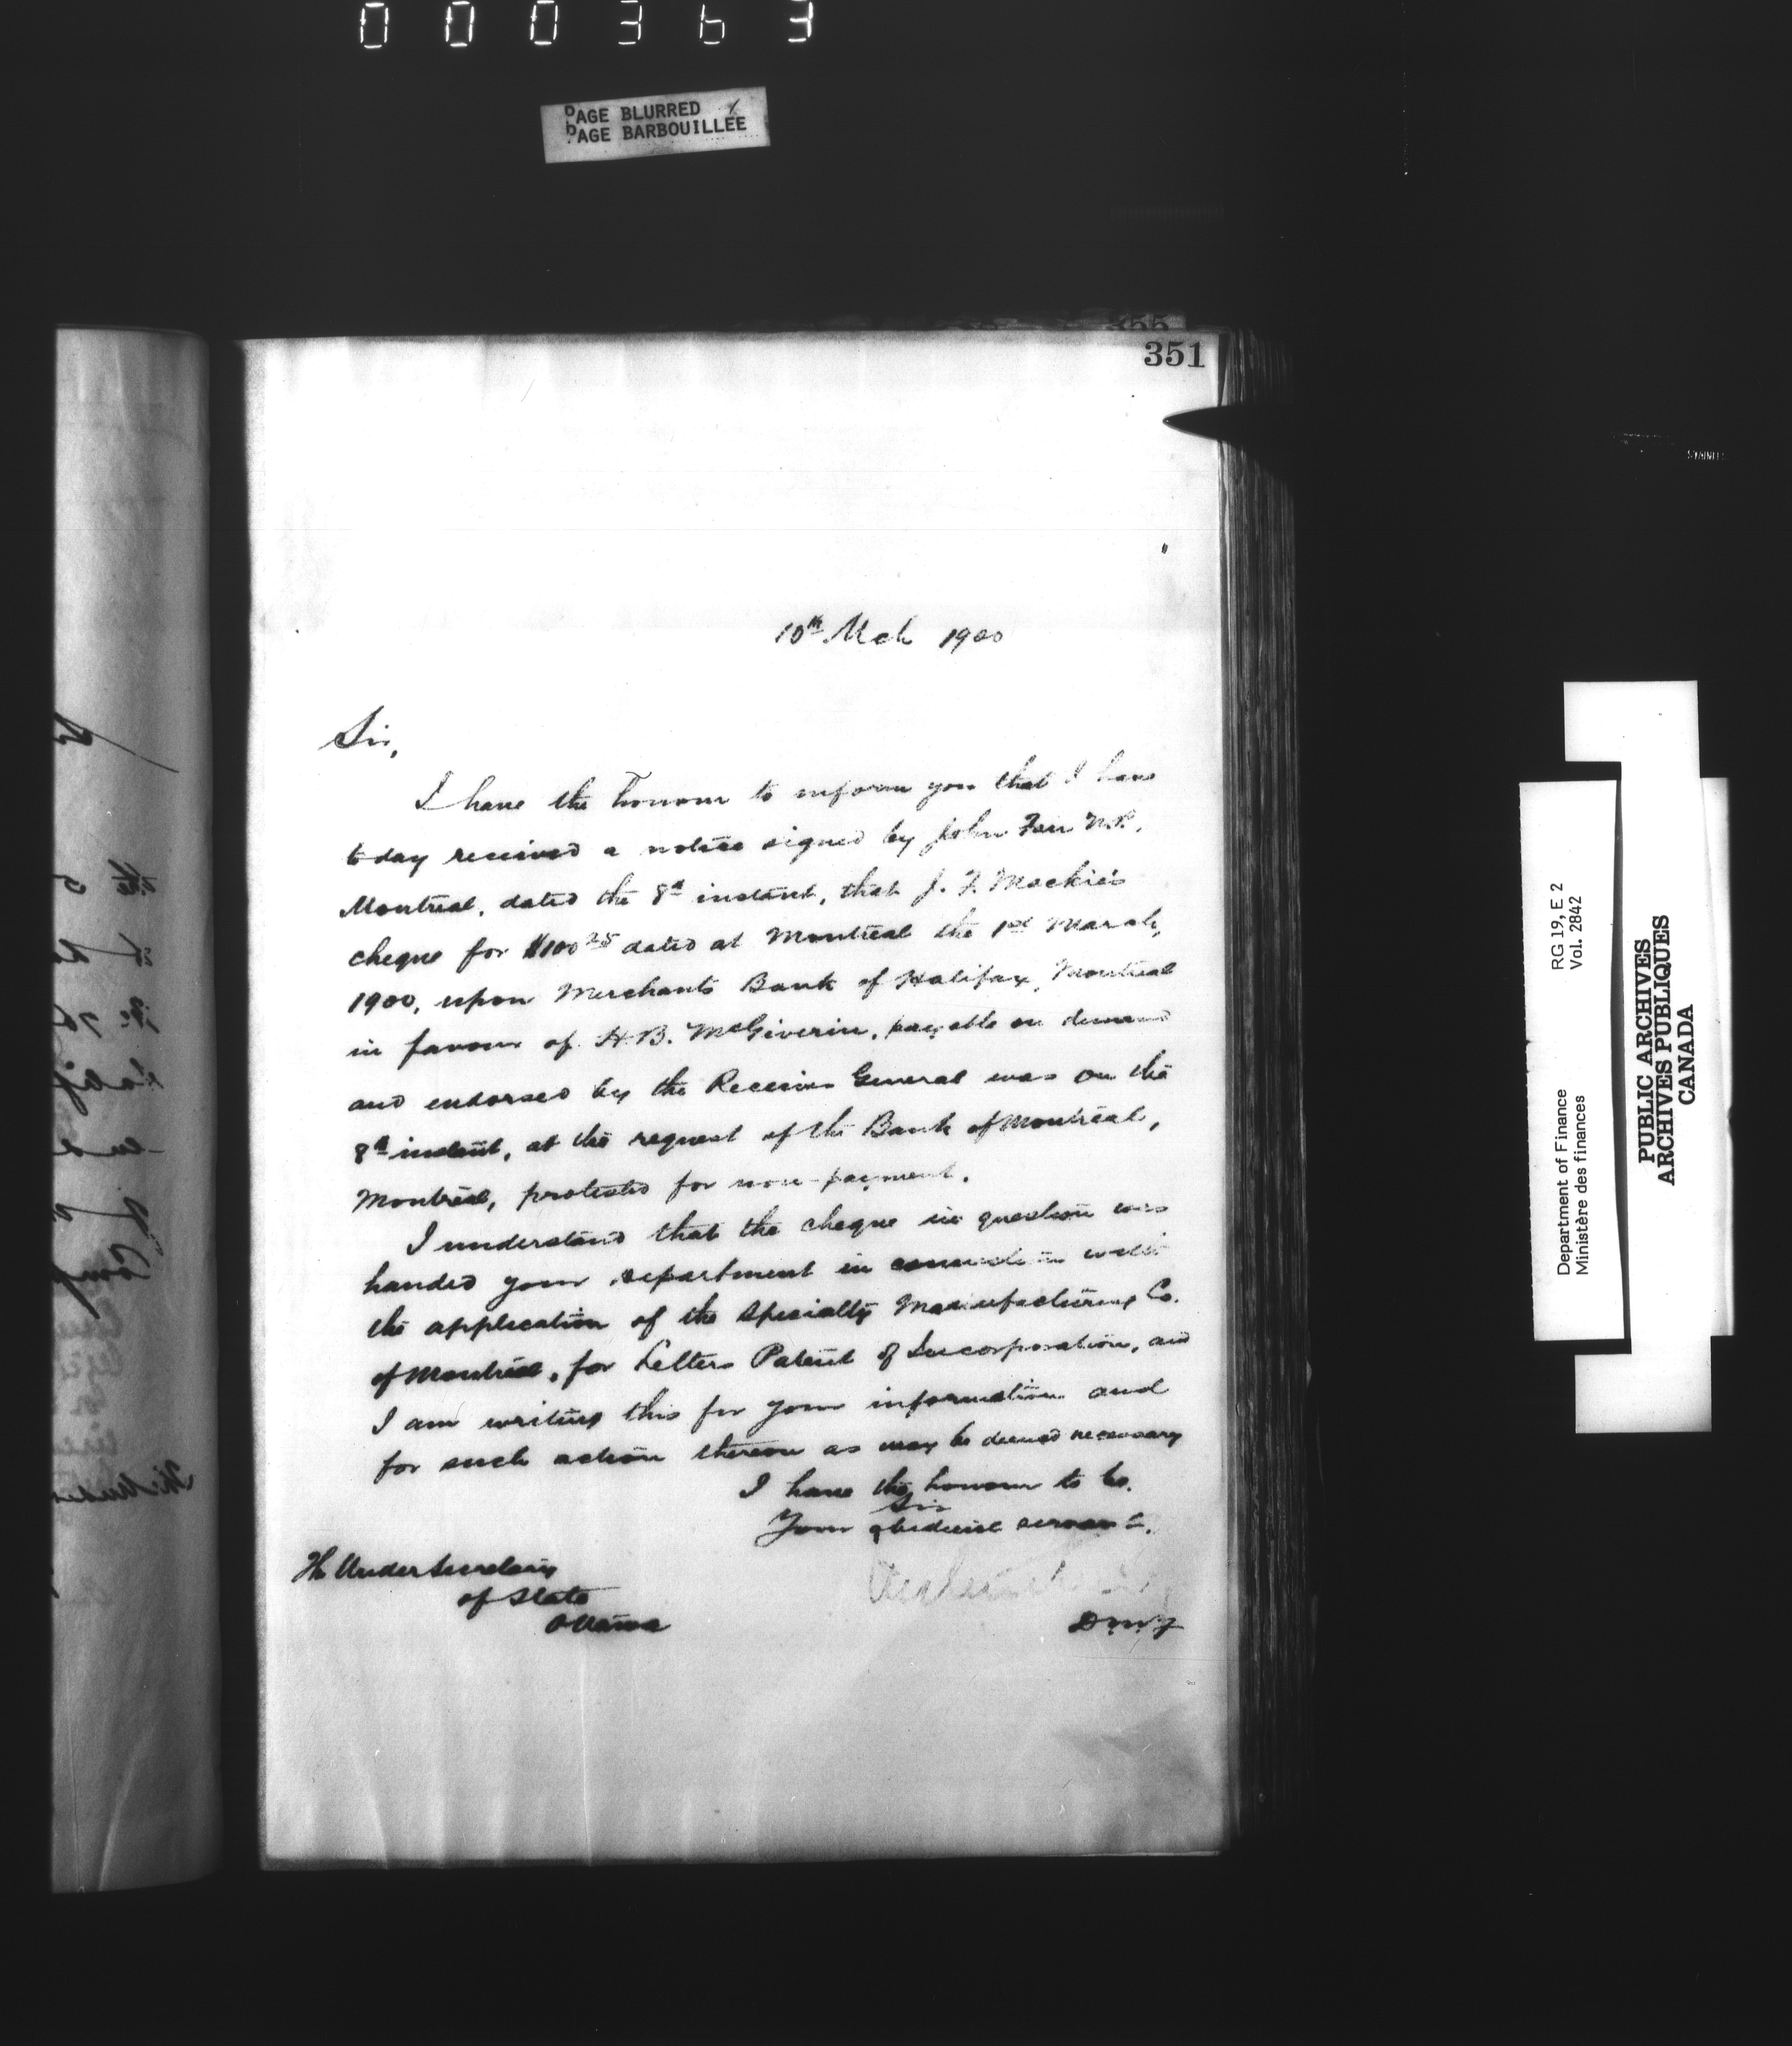 000363
PAGE BLURRED
PAGE BARBOUILLEE
351
10th Mch 1900
Sir,
I have the honour to inform you that I have
today received a notice signed by John Fair N.P.
Montreal, dated the 8th instant, that J. F. Mackie's
cheque for $100.25 dated at Montreal the 1st March,
1900, upon Merchants Bank of Halifax, Montreal
in favour of H. B. McGiverin, payable on demand
and endorsed by the Receiver General was on the
8th instant, at the request of the Bank of Montreal,
Montreal, protested for non-payment.
I understand that the cheque in question was
handed your department in connection with
the application of the Specialty Manufacturing Co.
of Montreal, for Letters Patent of Incorporation, and
I am writing this for your information and
for such action thereon as may be deemed necessary
I have the honour to be.
Sir
Your obedient servant.
The Under Secretary
of State
Ottawa
DMF
RG 19, E 2
Vol. 2842
Department of Finance
Ministère des finances
PUBLIC ARCHIVES
ARCHIVES PUBLIQUES
CANADA